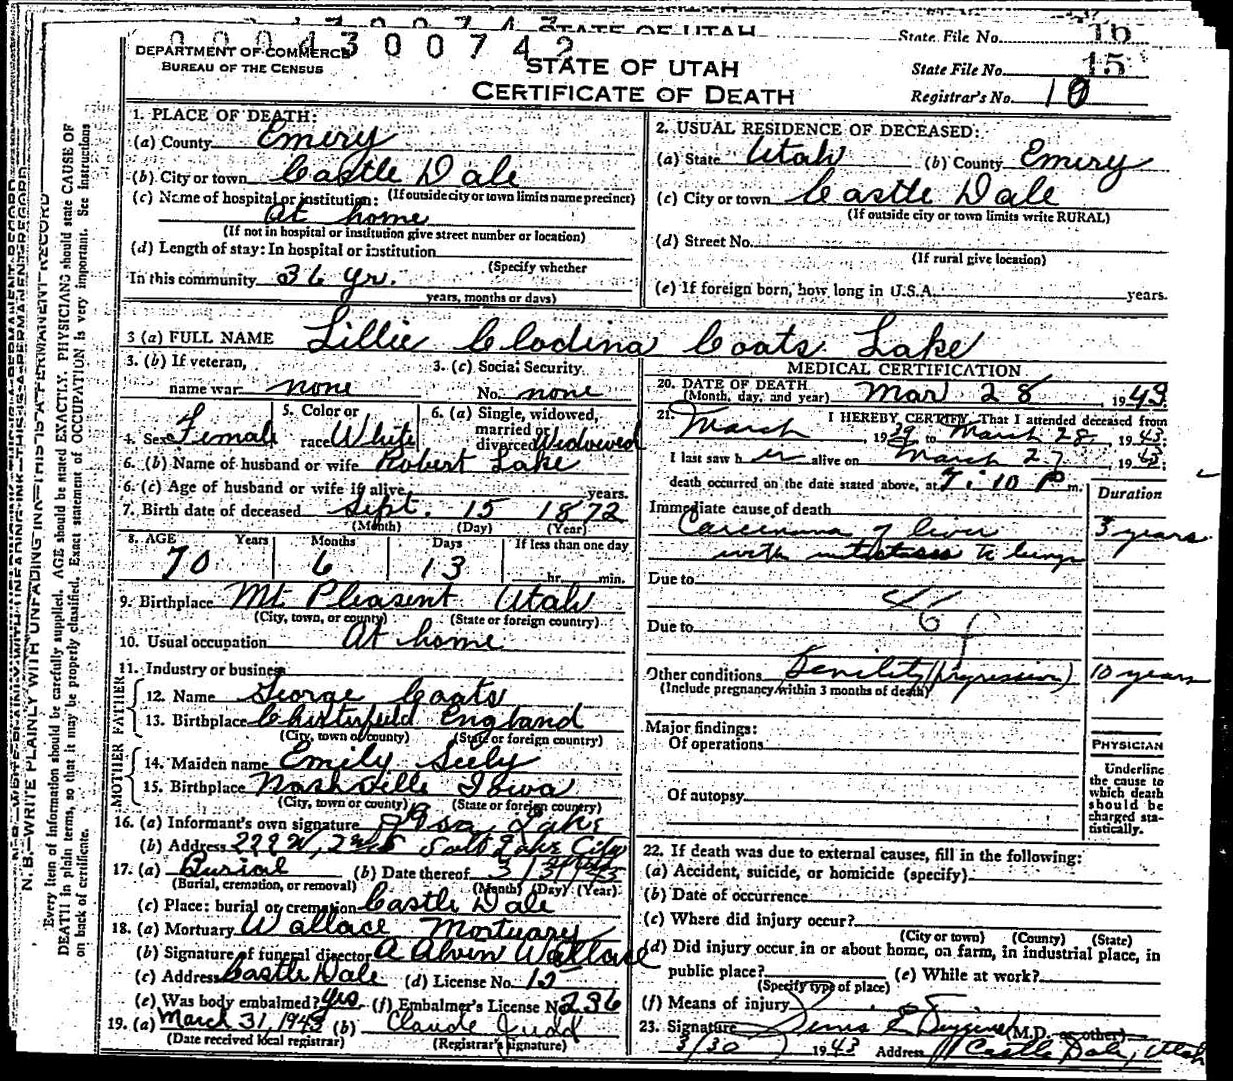 STATE OF UTAH
State File No. 16
0004300742
DEPARTMENT OF COMMERCE
BUREAU OF THE CENSUS
STATE OF UTAH
CERTIFICATE OF DEATH
State File No. 15
Registrar's No. 10
N. B.—WRITE PLAINLY WITH UNFADING INK—THIS IS A PERMANENT RECORD
Every item of information should be carefully supplied. AGE should be stated EXACTLY. PHYSICIANS should state CAUSE OF
DEATH in plain terms, so that it may be properly classified. Exact statement of OCCUPATION is very important. See instructions
on back of certificate.
1. PLACE OF DEATH:
(a) County Emery
(b) City or town Castle Dale
(c) Name of hospital or institution: (If outside city or town limits name precinct)
At home
(If not in hospital or institution give street number or location)
(d) Length of stay: In hospital or institution
(Specify whether
In this community 36 yr.
years, months or days)
2. USUAL RESIDENCE OF DECEASED:
(a) State Utah (b) County Emery
(c) City or town Castle Dale
(If outside city or town limits write RURAL)
(d) Street No.
(If rural give location)
(e) If foreign born, how long in U.S.A. years.
3 (a) FULL NAME Lillie Clodina Coats Lake
3. (b) If veteran,
name war none
3. (c) Social Security
No. none
4. Sex Female
5. Color or
race White
6. (a) Single, widowed,
married or
divorced Widowed
6. (b) Name of husband or wife Robert Lake
6. (c) Age of husband or wife if alive years.
7. Birth date of deceased Sept. 15 1872
(Month) (Day) (Year)
8. AGE Years Months Days If less than one day
70 6 13 hr. min.
9. Birthplace Mt Pleasent Utah
(City, town, or county) (State or foreign country)
10. Usual occupation At home
11. Industry or business
FATHER
12. Name George Coats
13. Birthplace Chisterfield England
(City, town or county) (State or foreign country)
MOTHER
14. Maiden name Emily Seely
15. Birthplace Nashville Iowa
(City, town or county) (State or foreign country)
16. (a) Informant's own signature Lake
(b) Address Salt Lake City
17. (a) Burial (b) Date thereof 3/31/1943
(Burial, cremation, or removal) (Month) (Day) (Year)
(c) Place: burial or cremation Castle Dale
18. (a) Mortuary Wallace Mortuary
(b) Signature of funeral director A Alvin Wallace
(c) Address Castle Dale (d) License No. 15
(e) Was body embalmed? Yes (f) Embalmer's License No 236
19. (a) March 31, 1943 (b) Claude Judd
(Date received local registrar) (Registrar's signature)
MEDICAL CERTIFICATION
20. DATE OF DEATH
(Month, day, and year) Mar 28, 1943
21. I HEREBY CERTIFY, That I attended deceased from
March, 1939 to March 28, 1943;
I last saw h er alive on March 27 1943;
death occurred on the date stated above, at 7:10 P m.
Duration
Immediate cause of death
Carcinoma of liver 3 years
with mitatases to lungs
Due to
46 f
Due to
Other conditions Senility (progressive) 10 years
(Include pregnancy within 3 months of death)
Major findings:
Of operations
Of autopsy
PHYSICIAN
Underline
the cause to
which death
should be
charged sta-
tistically.
22. If death was due to external causes, fill in the following:
(a) Accident, suicide, or homicide (specify)
(b) Date of occurrence
(c) Where did injury occur?
(City or town) (County) (State)
(d) Did injury occur in or about home, on farm, in industrial place, in
public place? (e) While at work?
(Specify type of place)
(f) Means of injury
23. Signature (M.D. or other)
3/30 1943 Address Castle Dale, Utah